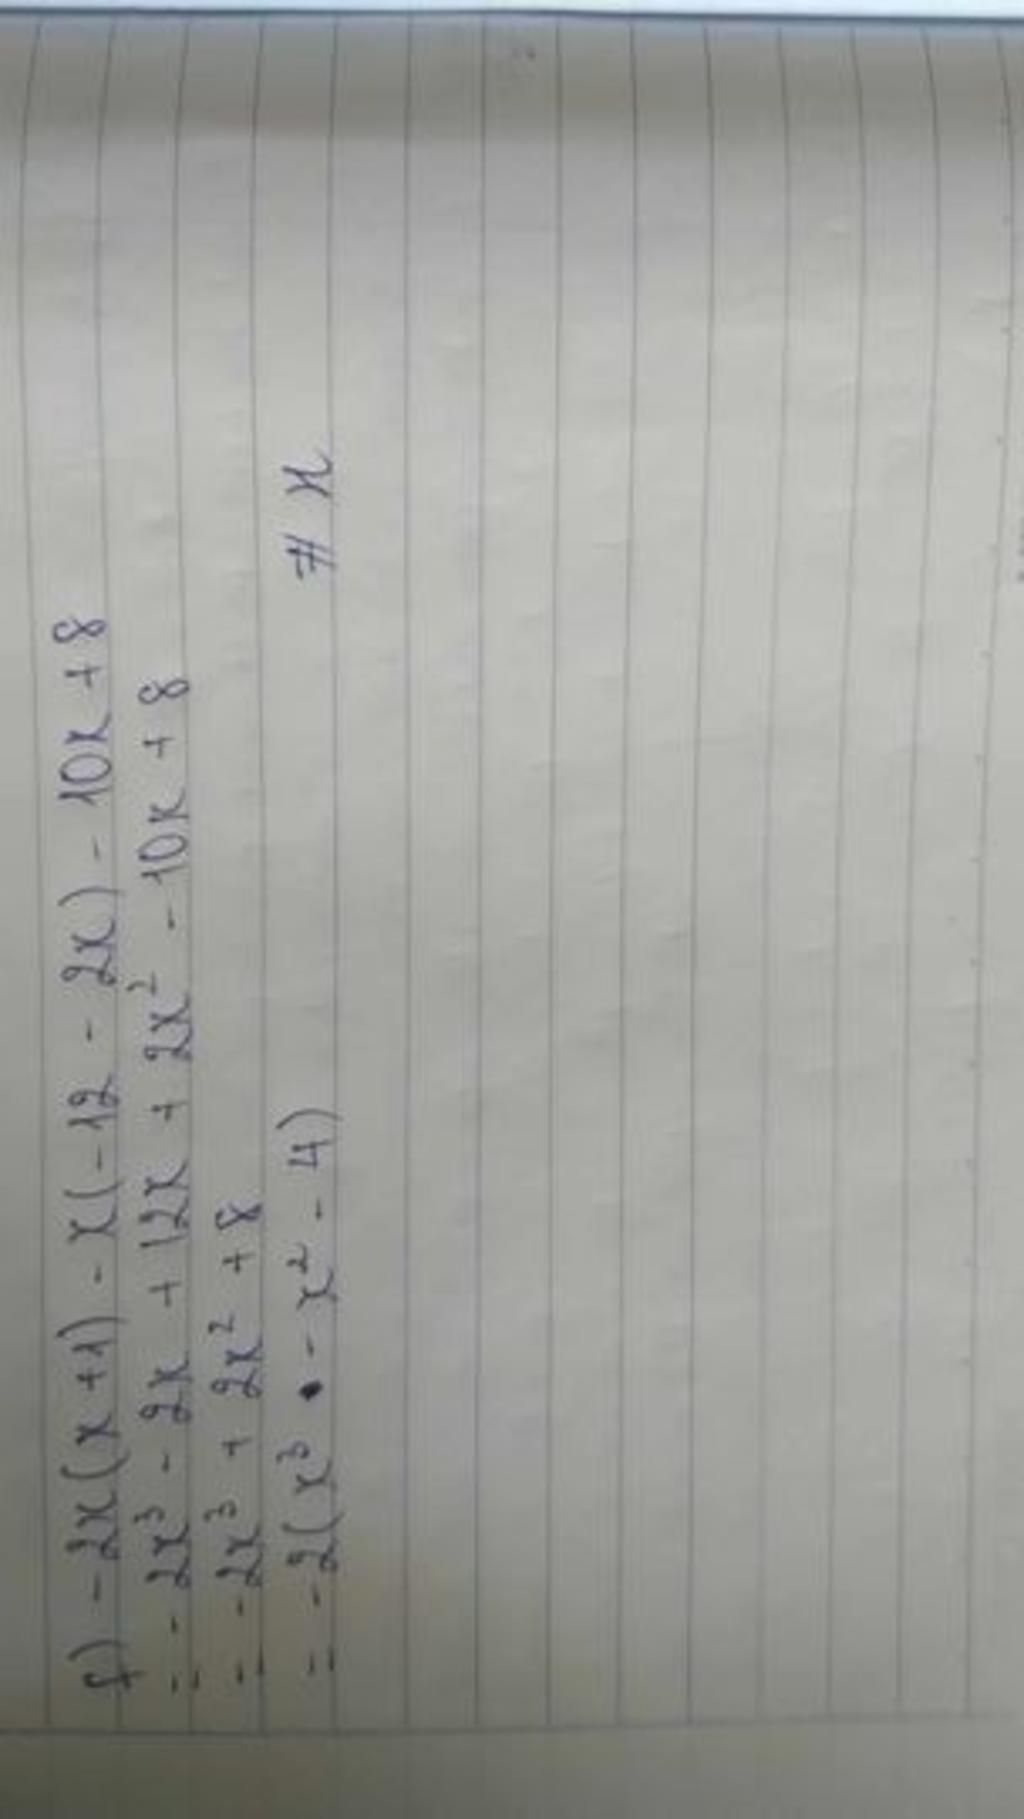 f) - 2x(x+1) - x(-12 - 2x) - 10x + 8
= - 2x³ - 2x + 12x + 2x² - 10x + 8
= - 2x³ + 2x² + 8
= - 2(x³ - x² - 4) ⧣ x